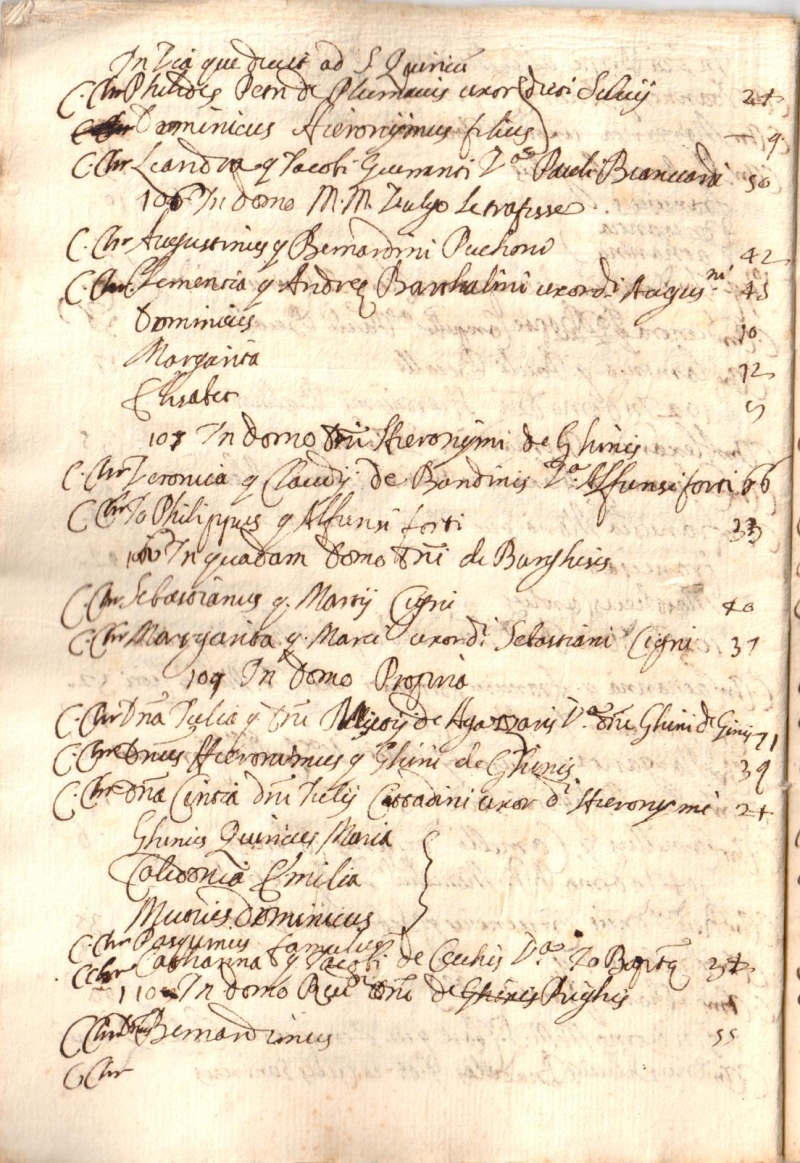 In Via que ducit ad S Quiricū
C. Chr Philides Petri de uxor dicti Silvij 24
Dominicus Hieronymus filius 9
C. Chr Leandra q Jacobi Va Pauli Biancardi 50
106 In domo M. M. Vulgo
C. Chr Augustinus q Bernardini 42
C. Chr Clementia q Andreę Barthalini uxor di Augusni 45
Dominicus 10
Margarita 12
Elisabet 5
107 In domo Dni Hieronymi de Ghinis
C. Chr Veronica q Claudij de Bandinis Va Alfunsi forti 66
C Chr Jo Philippus q Alfunsi forti 33
In quadam domo Dni de Burghesis
C. Chr Sebastianus q. Martij Cigni 40
C. Chr Margarita q. Marci uxor di Sebastiani Cigni 37
109 In domo Propria
C. Chr Dna Julia q Dni de Agazzaris Va Dni Ghini de Ginis 71
C. Chr Dnus Hieronimus q Ghini de Ghinis 39
C. Chr Dna Cintia Dni Julij uxor di Hieronymi 24
Ghinus Quiricus Maria
Calidonia Emilia
Mutius Dominicus
C. Chr Pasquinus famulus
C Chr Catharina q Jacobi de Cechis Va Jo Baptę
110 In domo Rudi Dni de Ghinis Righis
C Chr Dnus Bernardinus 55
C Chr